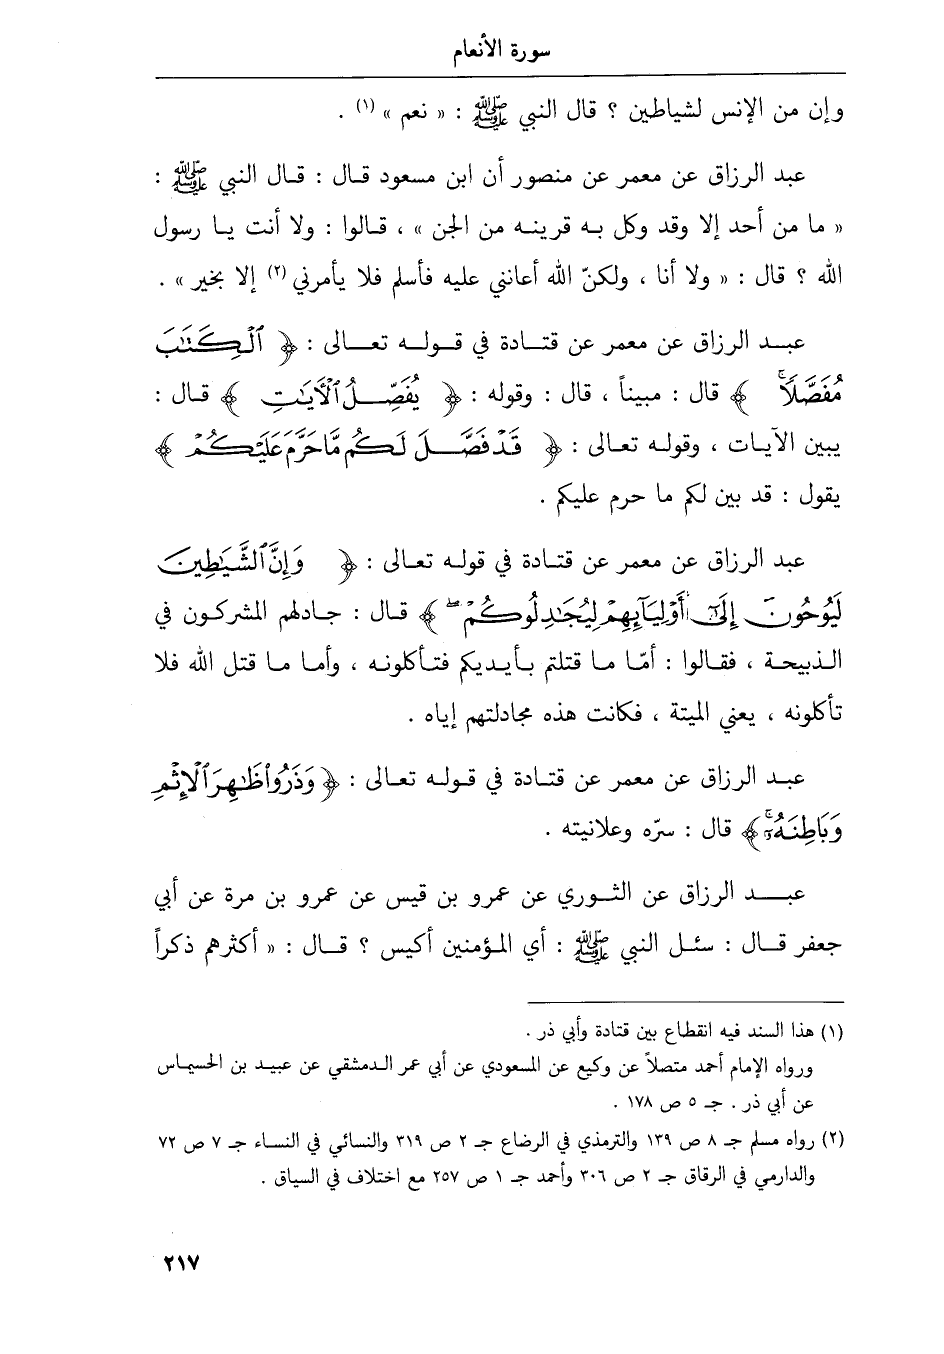 سورة الأنعام
وإن من الإنس لشياطين ؟ قال النبي ﷺ : « نعم » (١) .
عبد الرزاق عن معمر عن منصور أن ابن مسعود قال : قال النبي ﷺ :
« ما من أحد إلا وقد وكل به قرينه من الجن » ، قالوا : ولا أنت يا رسول
الله ؟ قال : « ولا أنا ، ولكنّ الله أعانني عليه فأسلم فلا يأمرني (٢) إلا بخير » .
عبد الرزاق عن معمر عن قتادة في قوله تعالى : ﴿ ٱلْكِتَٰبَ
مُفَصَّلًاۚ ﴾ قال : مبيناً ، قال : وقوله : ﴿ يُفَصِّلُ ٱلْأٓيَٰتِ ﴾ قال :
يبين الآيات ، وقوله تعالى : ﴿ قَدْ فَصَّلَ لَكُم مَّا حَرَّمَ عَلَيْكُمْ ﴾
يقول : قد بين لكم ما حرم عليكم .
عبد الرزاق عن معمر عن قتادة في قوله تعالى : ﴿ وَإِنَّ ٱلشَّيَٰطِينَ
لَيُوحُونَ إِلَىٰٓ أَوْلِيَآئِهِمْ لِيُجَٰدِلُوكُمْۖ ﴾ قال : جادلهم المشركون في
الذبيحة ، فقالوا : أمّا ما قتلتم بأيديكم فتأكلونه ، وأما ما قتل الله فلا
تأكلونه ، يعني الميتة ، فكانت هذه مجادلتهم إياه .
عبد الرزاق عن معمر عن قتادة في قوله تعالى : ﴿ وَذَرُوا۟ ظَٰهِرَ ٱلْإِثْمِ
وَبَاطِنَهُۥٓۚ ﴾ قال : سرّه وعلانيته .
عبد الرزاق عن الثوري عن عمرو بن قيس عن عمرو بن مرة عن أبي
جعفر قال : سئل النبي ﷺ : أي المؤمنين أكيس ؟ قال : « أكثرهم ذكراً
(١) هذا السند فيه انقطاع بين قتادة وأبي ذر .
ورواه الإمام أحمد متصلاً عن وكيع عن المسعودي عن أبي عمر الدمشقي عن عبيد بن الحسيماس
عن أبي ذر . جـ ٥ ص ١٧٨ .
(٢) رواه مسلم جـ ٨ ص ١٣٩ والترمذي في الرضاع جـ ٢ ص ٣١٩ والنسائي في النساء جـ ٧ ص ٧٢
والدارمي في الرقاق جـ ٢ ص ٣٠٦ وأحمد جـ ١ ص ٢٥٧ مع اختلاف في السياق .
٢١٧